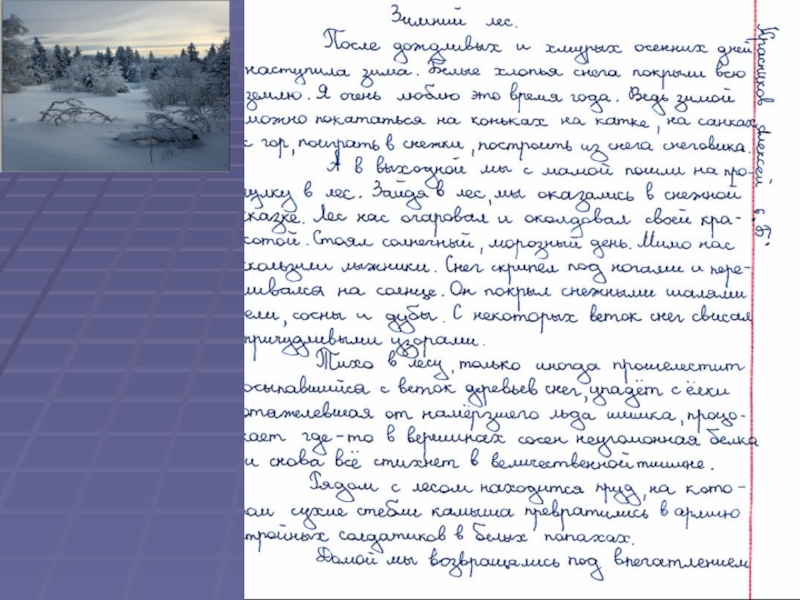 Зимний лес.
После дождливых и хмурых осенних дней
наступила зима. Белые хлопья снега покрыли всю
землю. Я очень люблю это время года. Ведь зимой
можно покататься на коньках на катке, на санках
с гор, поиграть в снежки, построить из снега снеговика.
А в выходной мы с мамой пошли на про-
гулку в лес. Зайдя в лес, мы оказались в снежной
сказке. Лес нас очаровал и околдовал своей кра-
сотой. Стоял солнечный, морозный день. Мимо нас
скользили лыжники. Снег скрипел под ногами и пере-
ливался на солнце. Он покрыл снежными шалями
ели, сосны и дубы. С некоторых веток снег свисал
причудливыми узорами.
Тихо в лесу, только иногда прошелестит
осыпавшийся с веток деревьев снег, упадёт с ёлки
отяжелевшая от намёрзшего льда шишка, процо-
кает где-то в вершинах сосен неугомонная белка
и снова всё стихнет в величественной тишине.
Рядом с лесом находится пруд, на кото-
ром сухие стебли камыша превратились в армию
стройных солдатиков в белых папахах.
Домой мы возвращались под впечатлением
Алексей 6 "Б"